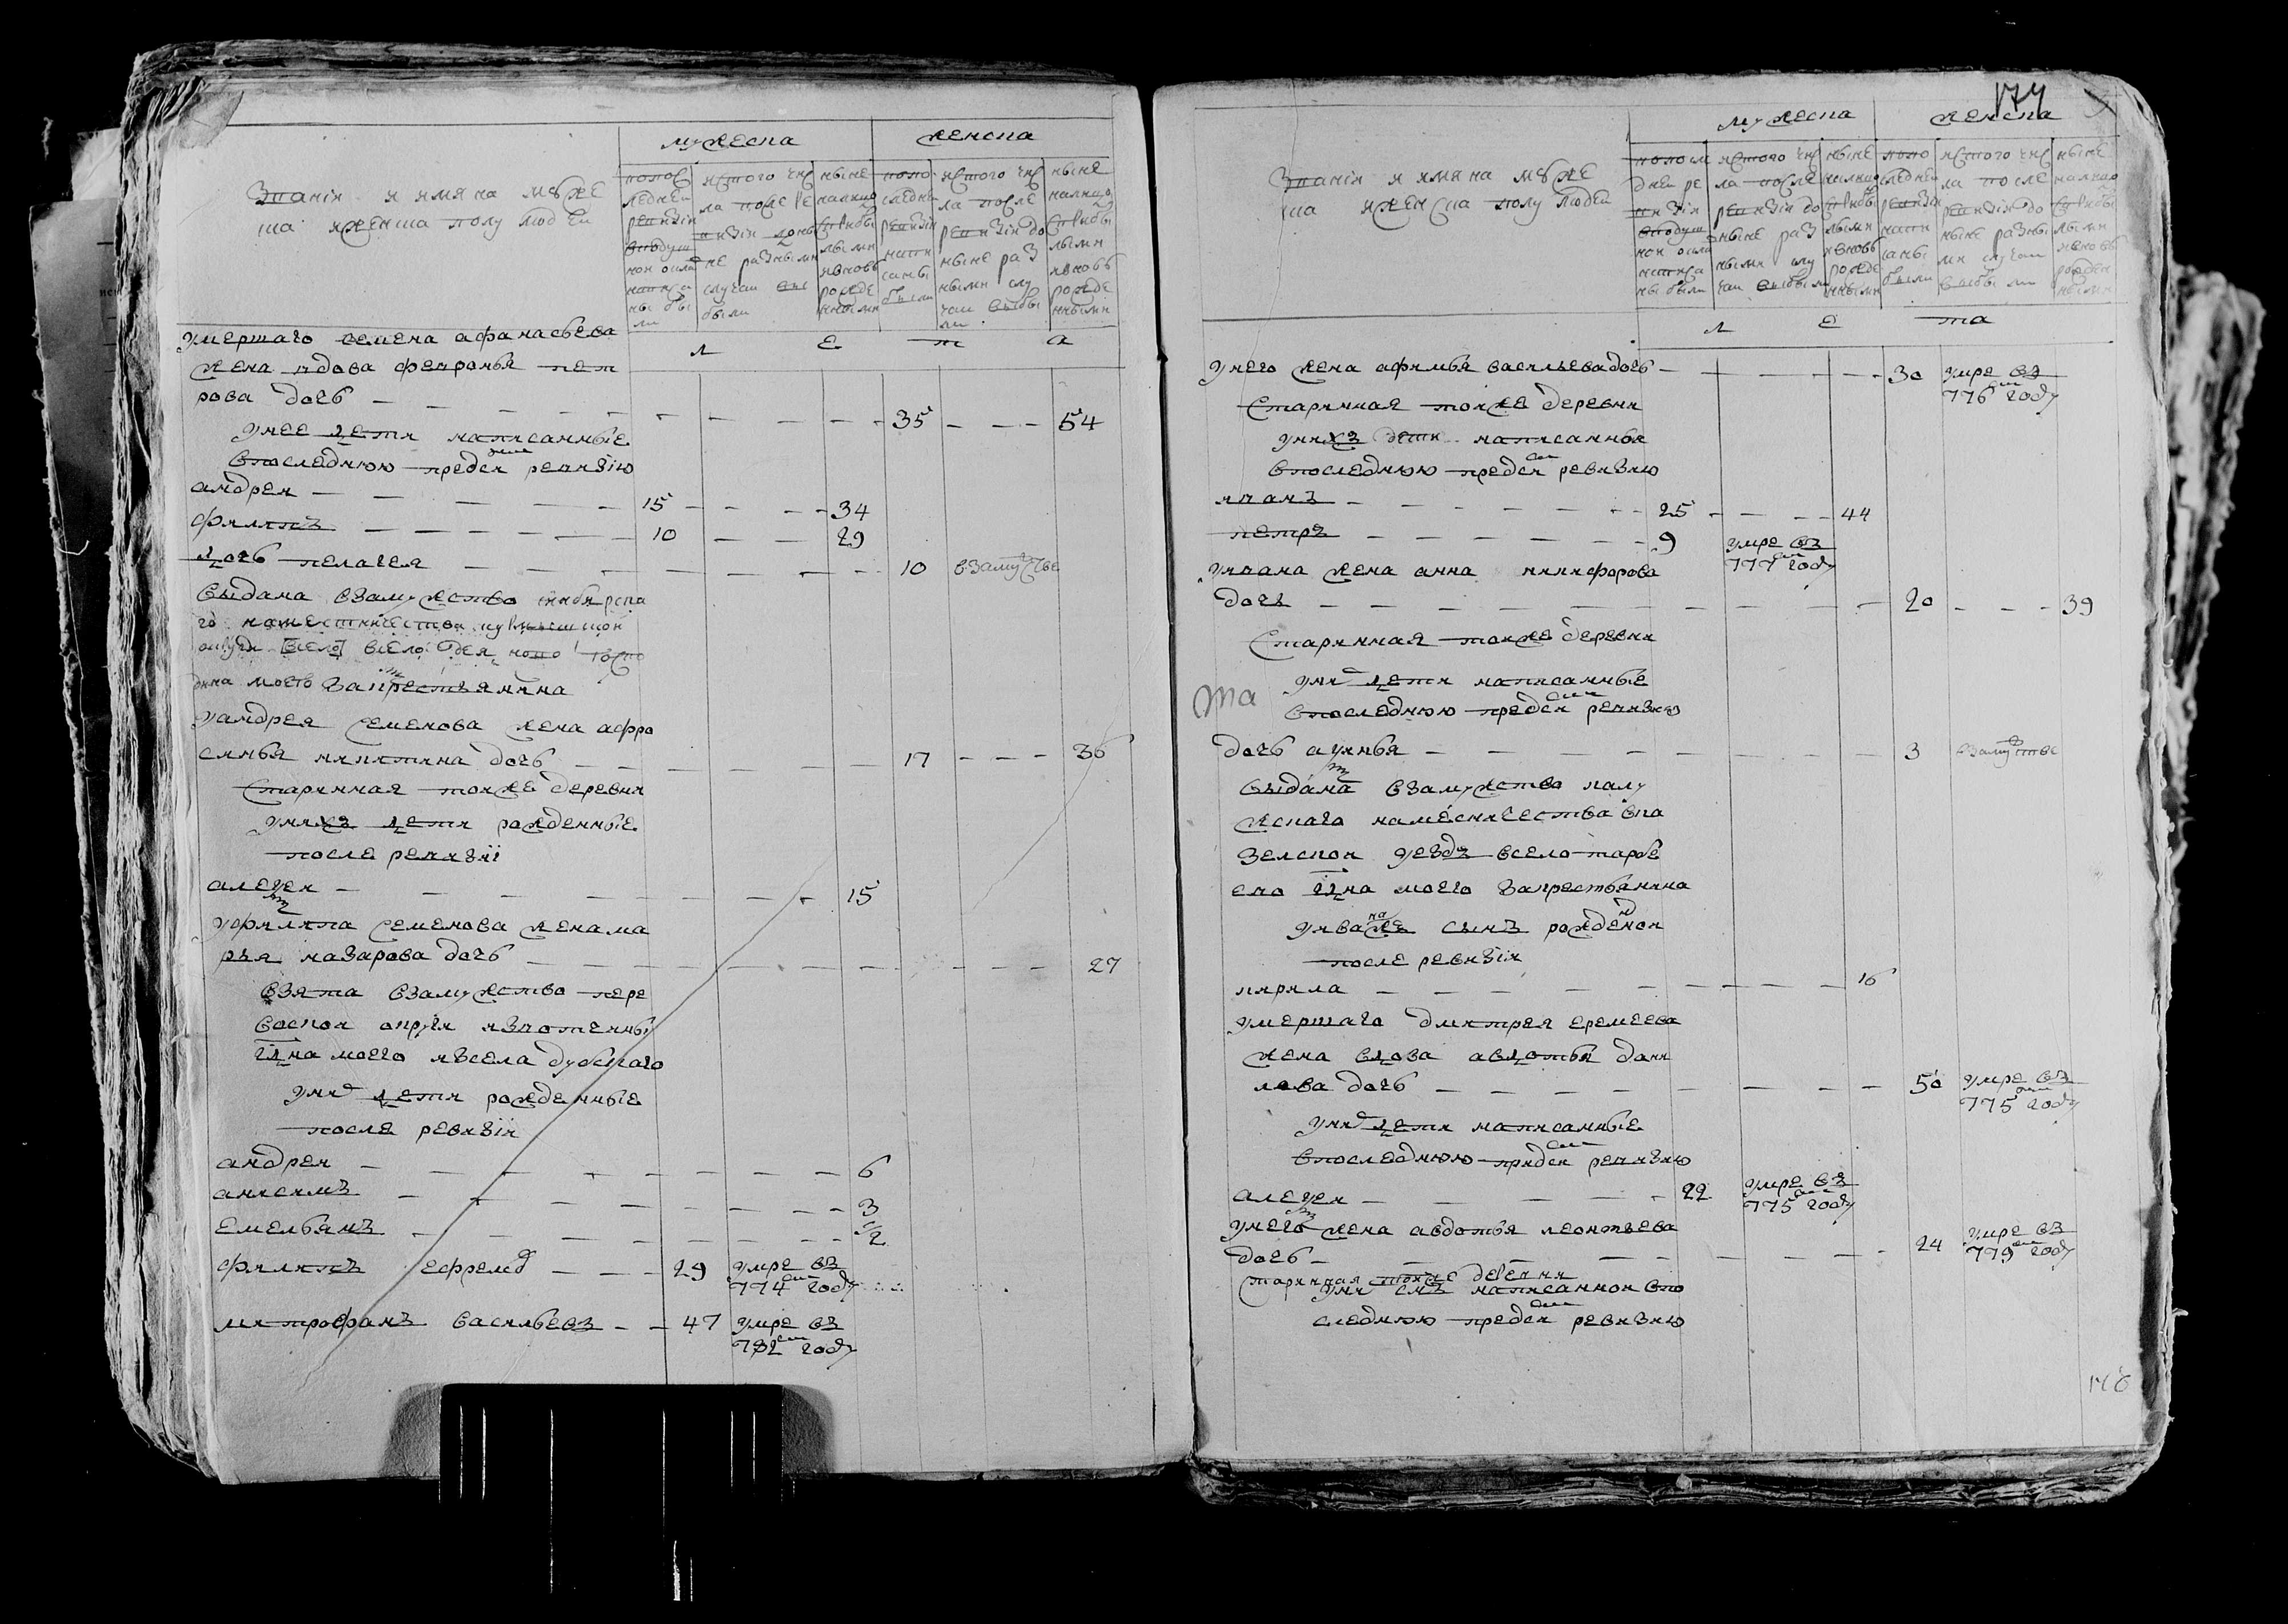 мужеска
женска
Звания и имяна муже
ска и женска полу людей
по пос
ледней
ревизіи
в подуш
ной окла
написа
ны бы
ли
ис того чис
ла после ре
визіи до ны
не разными
случаи вы
были
ныне
налицо
с прибы
лыми
и вновь
рожде
нными
по по
следней
ревизіи
напи
саны
были
ис того чис
ла после
ревизіи до
ныне раз
ными слу
чаи выбы
ли
ныне
налицо
с прибы
лыми
и вновь
рожде
нными
л е т а
умершаго семена афанасьева
жена вдова февронья пет
рова дочь — — — 35 — — — 54
унее дети написанные
впоследнюю пред сею ревизію
андреи — — — 15 — — — 34
филипъ — — — 10 — — 29
дочь пелагея — — — 10 взамужстве
выдана взамужство
го наместничества
всело
дина моего закрестьянина
уандрея семенова жена афро
синья никитина дочь — — — 17 — — — 36
старинная тоиже деревни
унихъ дети рожденные
после ревизіи
алеѯеи — — — 15
уфилипа семенова жена ма
рья назарова дочь — — — 27
взята взамужство пере
воскои округи извотчины
гдна моего изсела дубскаго
унихъ дети рожденные
после ревизіи
андреи — — — 6
анисимъ — — — 3
емельянъ — — — 1/2
филипъ ефремов — — — 29 умре въ
774м году
митрофанъ васильевъ — — 47 умре въ
782м году
174
мужеска
женска
Звания и имяна муже
ска и женска полу людей
по посл
дней ре
визіи
в подуш
ной окла
написа
ны были
ис того чис
ла после
ревизіи до
ныне раз
ными слу
чаи выбыли
ныне
налицо
с прибы
лыми
и вновь
рожде
нными
по по
следней
ревизіи
напи
саны
были
ис того чис
ла после
ревизіи до
ныне разны
ми случаи
выбыли
ныне
налицо
с прибы
лыми
и вновь
рожден
ными
л е та
унего жена афимья васильева дочь — — — 30 умре въ
776м году
старинная тоиже деревни
унихъ дети написанныя
впоследнюю пред сею ревизию
иванъ — — — 25 — — — 44
петръ — — — 9 умре въ
777м году
уивана жена анна никифорова
дочь — — — 20 — — — 39
старинная тоиже деревни
уних дети написанные
впоследнюю пред сею ревизию
дочь акулинья — — — 3 взамужстве
выдана взамужство калу
жскаго наместничества вко
зелскои уездъ всело
гдна моего закрестьянина
уиванаже сынъ рожденои
после ревизіи
кирила — — — 16
умершаго дмитрея еремеева
жена вдова авдотья дани
лова дочь — — — 50 умре въ
775м году
уних дети написанные
впоследнюю пред сею ревизию
алеѯеи — — — 22 умре въ
775м году
унего жена авдотья леонтьева
дочь — — — 24 умре въ
779м году
старинная тоиже деревни
уних снъ написаннои впо
следнюю пред сею ревизию